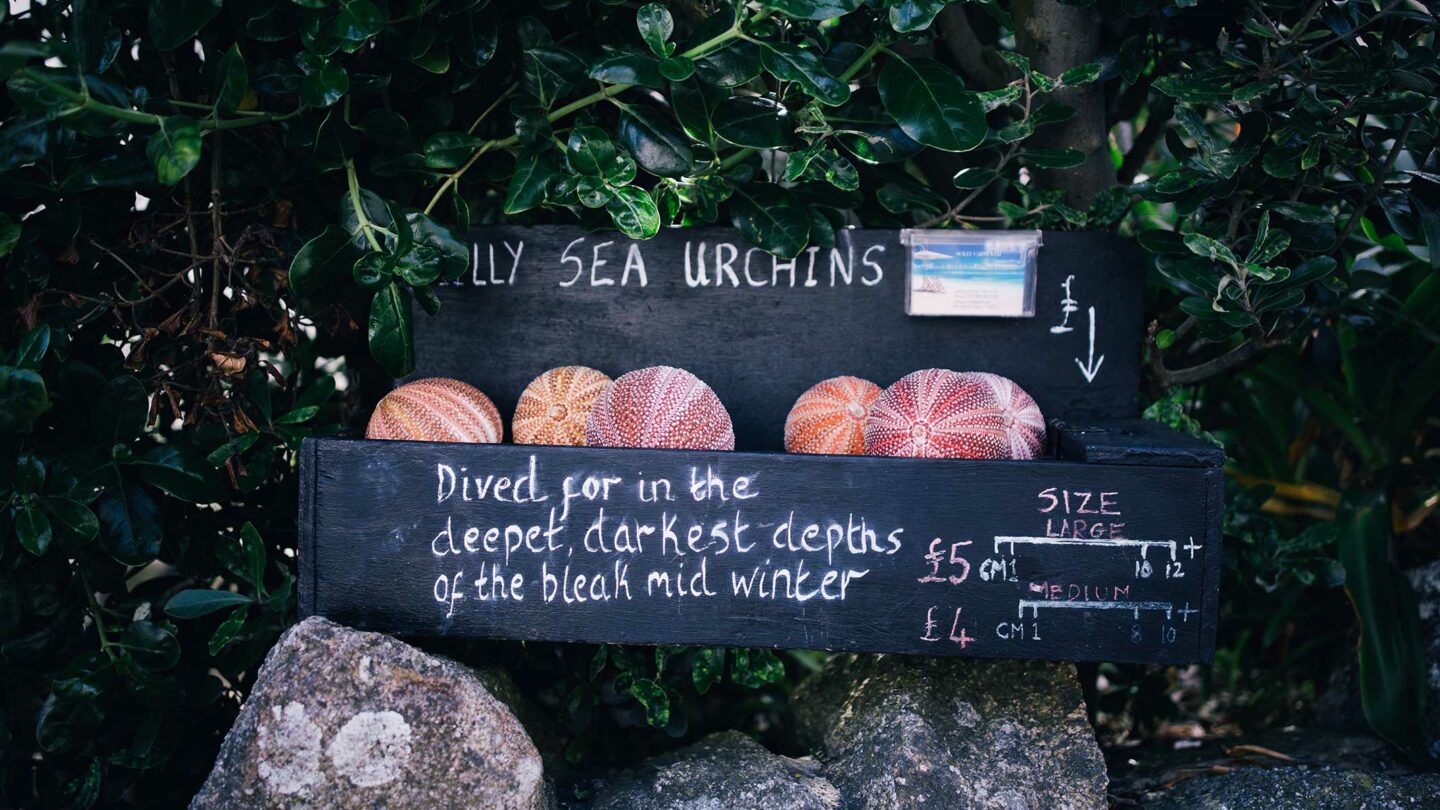 ILLY SEA URCHINS
£
Dived for in the
deepet, darkest depths
of the bleak mid winter
SIZE
LARGE
£5 CM1 10 12 +
MEDIUM
£4 CM1 8 10 +